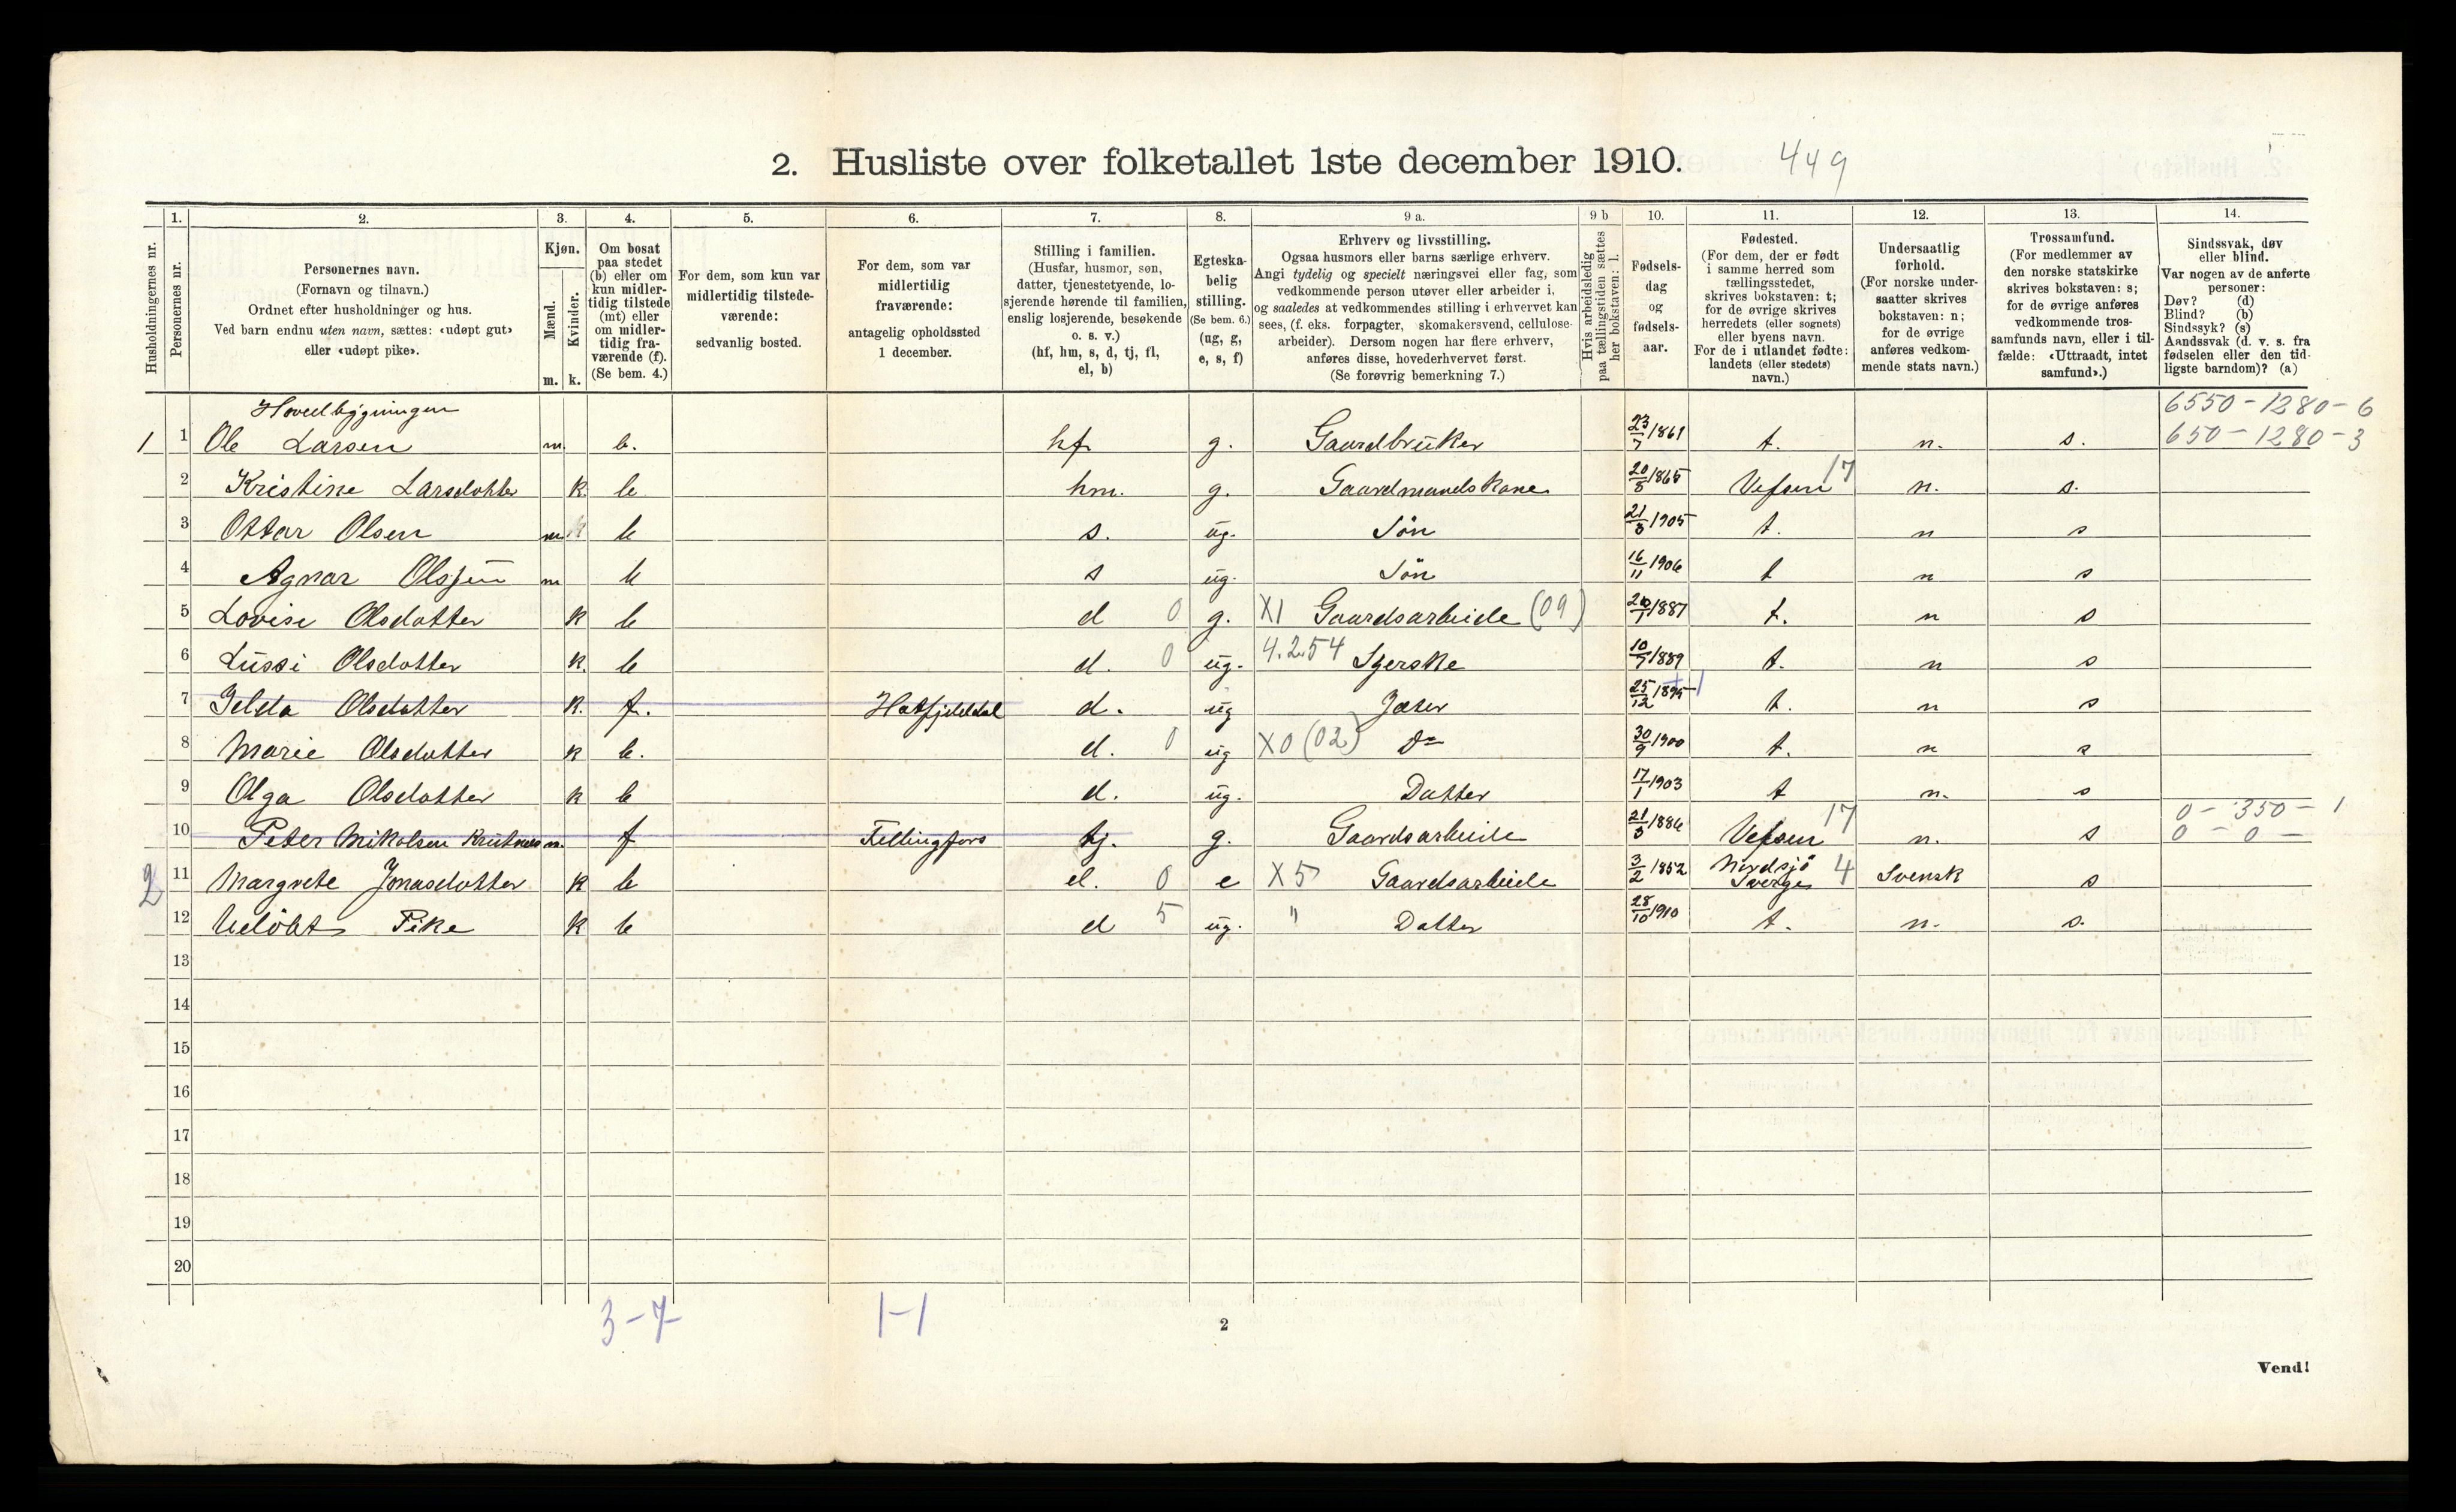 2. Husliste over folketallet 1ste december 1910. 449
1. 2. 3. 4. 5. 6. 7. 8. 9 a. 9 b 10. 11. 12. 13. 14.
Husholdningernes nr.
Personernes nr.
Personernes navn.
(Fornavn og tilnavn.)
Ordnet efter husholdninger og hus.
Ved barn endnu uten navn, sættes: «udøpt gut»
eller «udøpt pike».
Kjøn.
Mænd.
Kvinder.
m. k.
Om bosat
paa stedet
(b) eller om
kun midler-
tidig tilstede
(mt) eller
om midler-
tidig fra-
værende (f).
(Se bem. 4.)
For dem, som kun var
midlertidig tilstede-
værende:
sedvanlig bosted.
For dem, som var
midlertidig
fraværende:
antagelig opholdssted
1 december.
Stilling i familien.
(Husfar, husmor, søn,
datter, tjenestetyende, lo-
sjerende hørende til familien,
enslig losjerende, besøkende
o. s. v.)
(hf, hm, s, d, tj, fl,
el, b)
Egteska-
belig
stilling.
(Se bem. 6.)
(ug, g,
e, s, f)
Erhverv og livsstilling.
Ogsaa husmors eller barns særlige erhverv.
Angi tydelig og specielt næringsvei eller fag, som
vedkommende person utøver eller arbeider i,
og saaledes at vedkommendes stilling i erhvervet kan
sees, (f. eks. forpagter, skomakersvend, cellulose-
arbeider). Dersom nogen har flere erhverv,
anføres disse, hovederhvervet først.
(Se forøvrig bemerkning 7.)
Hvis arbeidsledig
paa tællingstiden sættes
her bokstaven: l.
Fødsels-
dag
og
fødsels-
aar.
Fødested.
(For dem, der er født
i samme herred som
tællingsstedet,
skrives bokstaven: t;
for de øvrige skrives
herredets (eller sognets)
eller byens navn.
For de i utlandet fødte:
landets (eller stedets)
navn.)
Undersaatlig
forhold.
(For norske under-
saatter skrives
bokstaven: n;
for de øvrige
anføres vedkom-
mende stats navn.)
Trossamfund.
(For medlemmer av
den norske statskirke
skrives bokstaven: s;
for de øvrige anføres
vedkommende tros-
samfunds navn, eller i til-
fælde: «Uttraadt, intet
samfund».)
Sindssvak, døv
eller blind.
Var nogen av de anførte
personer:
Døv? (d)
Blind? (b)
Sindssyk? (s)
Aandssvak (d. v. s. fra
fødselen eller den tid-
ligste barndom)? (a)
Hovedbygningen 6550-1280-6
1 1 Ole Larsen m. b. hf g. Gaardbruker 23/7 1861 t. n. s. 650-1280-3
2 Kristine Larsdotter k. b hm. g. Gaardmandskone 20/8 1865 Vefsen 17 n. s.
3 Ottar Olsen m b s. ug. Søn 21/8 1905 t. n s
4 Agnar Olssen m b s ug. Søn 16/11 1906 t n s
5 Lovise Olsdotter k b d 0 g. X1 Gaardsarbeide (09) 1887 t. n s
6 Lussi Olsdotter k. b d. 0 ug. 4.2.54 Syerske 10/7 1889 t. n s
7 Olsdotter k. f. Hatfjelddal d. ug 25/12 1895 t. n s
8 Marie Olsdotter k b. d. 0 ug X0 (02) Do 30/9 1900 t. n s
9 Olga Olsdotter k b d. ug. Datter 17/1 1903 t n. s
0-350-1
10 Peter Mikalsen m. f Fellingfors tj. g. Gaardsarbeide 21/8 1886 Vefsen 17 n. s 0-0-
2 11 Margrete Jonasdotter k b el. 0 e X5 Gaardsarbeide 3/2 1852 Nordsjö Sverge 4 Svensk s
12 Udöbt Pike k b d 5 ug. " Datter 28/10 1910 t. n. s.
13
14
15
16
17
18
19
20
3-7 1-1
2
Vend!